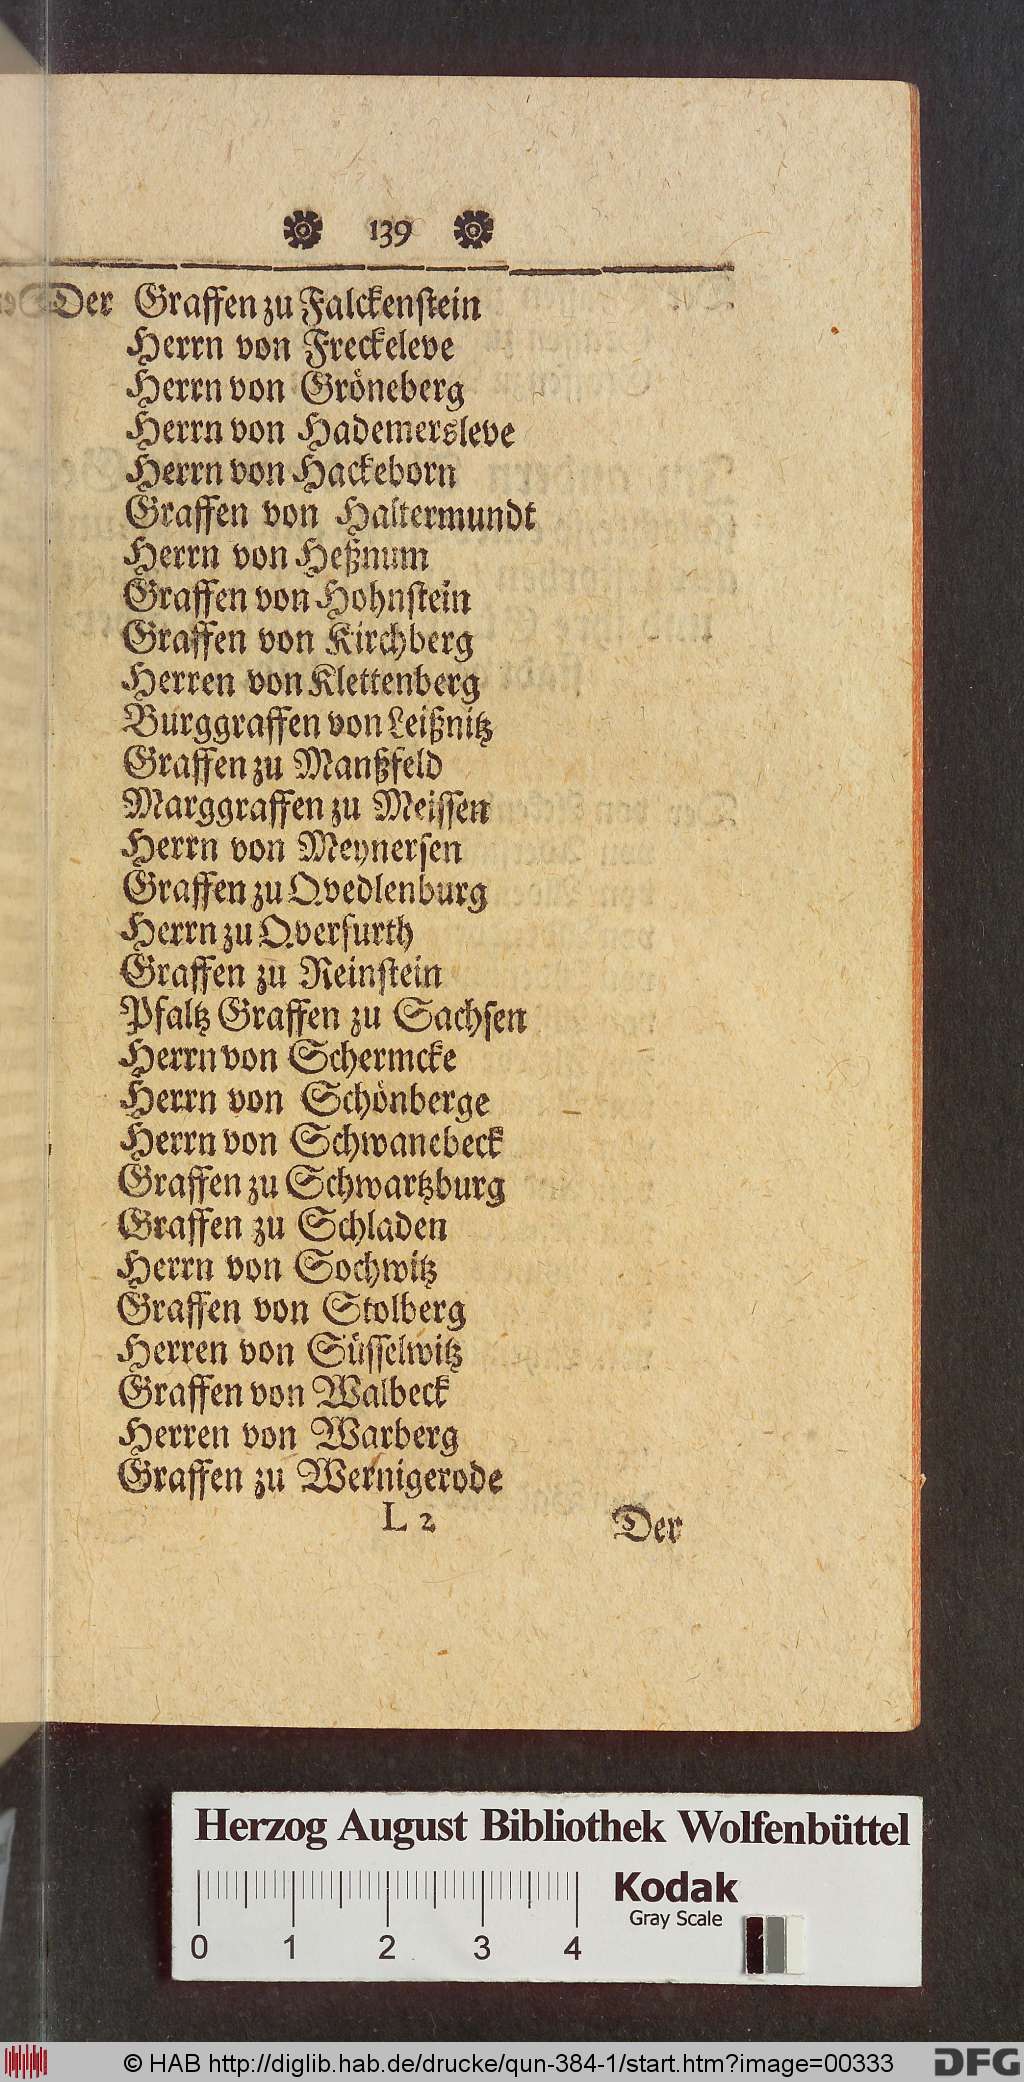 139
Der Graffen zu Falckenstein
Herrn von Freckeleve
Herrn von Gröneberg
Herrn von Hademersleve
Herrn von Hackeborn
Graffen von Haltermundt
Herrn von Heßnum
Graffen von Hohnstein
Graffen von Kirchberg
Herren von Klettenberg
Burggraffen von Leißnitz
Graffen zu Manßfeld
Marggraffen zu Meissen
Herrn von Meynersen
Graffen zu Qvedlenburg
Herrn zu Qverfurth
Graffen zu Reinstein
Pfaltz Graffen zu Sachsen
Herrn von Schermcke
Herrn von Schönberge
Herrn von Schwanebeck
Graffen zu Schwartzburg
Graffen zu Schladen
Herrn von Sochwitz
Graffen von Stolberg
Herren von Süsselwitz
Graffen von Walbeck
Herren von Warberg
Graffen zu Wernigerode
L 2
Der
Herzog August Bibliothek Wolfenbüttel
Kodak
Gray Scale
0 1 2 3 4
© HAB http://diglib.hab.de/drucke/qun-384-1/start.htm?image=00333
DFG